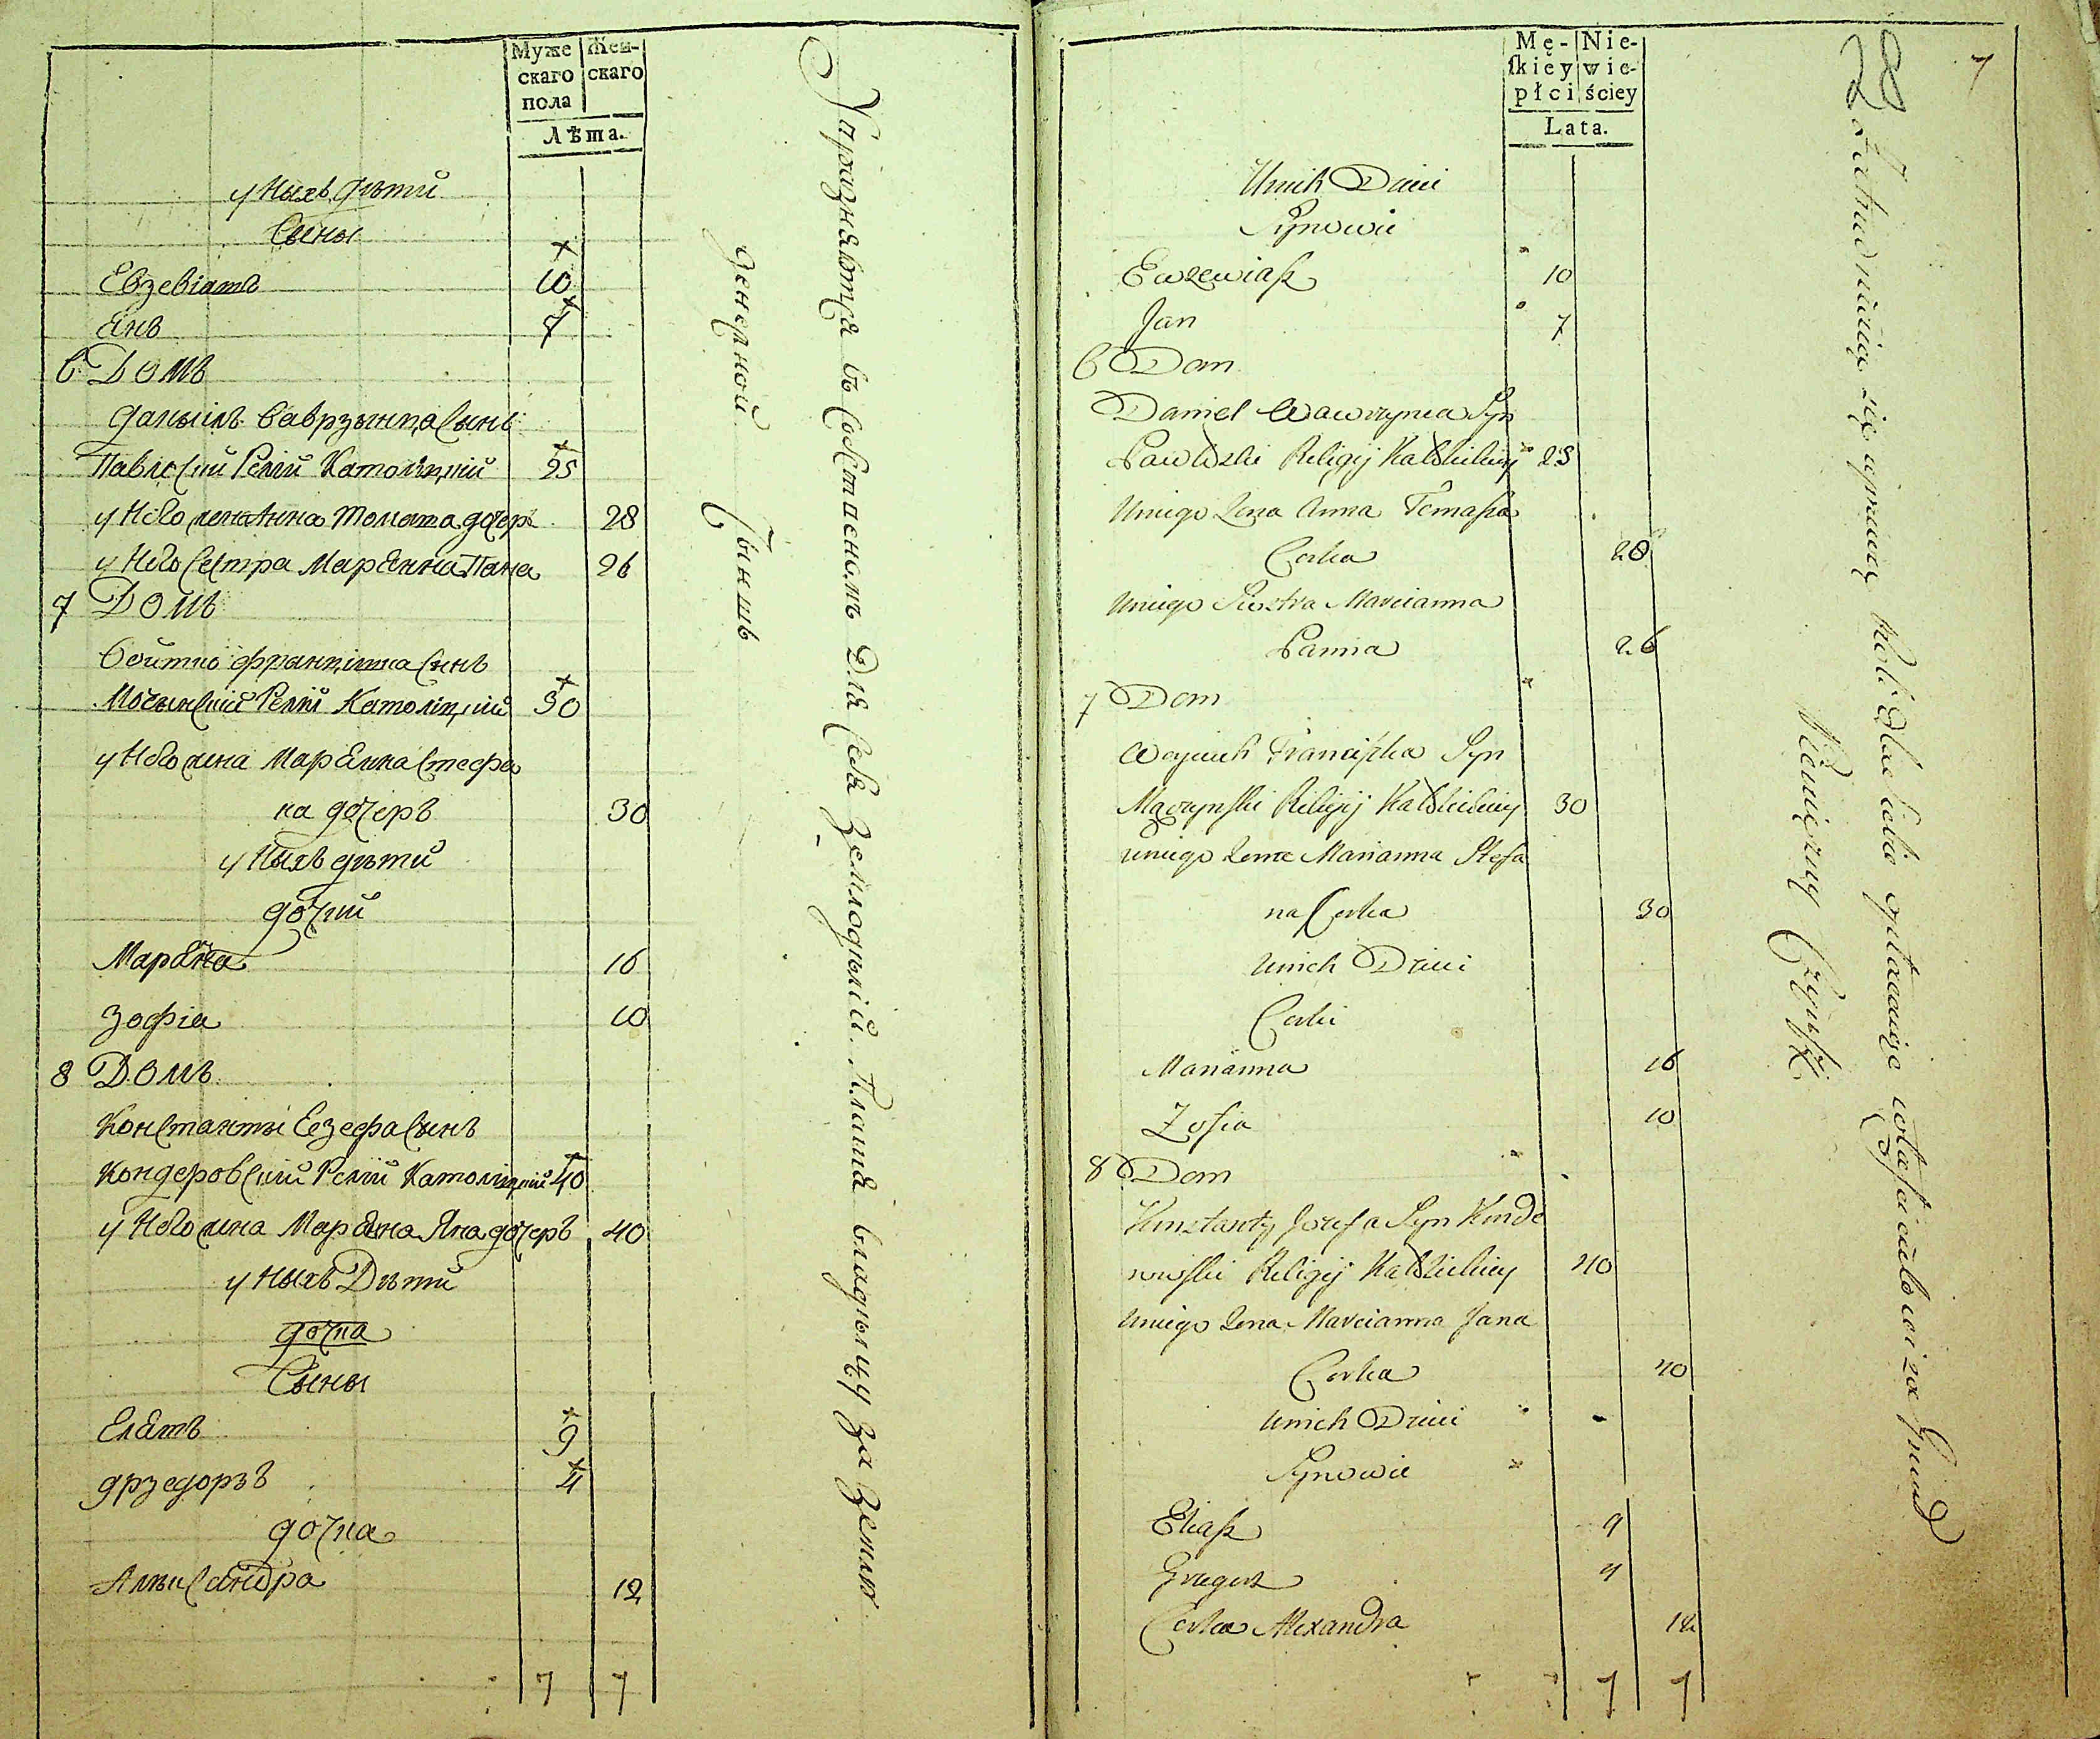 Муже
скаго
пола
Жен-
скаго
Лѣта.
у Ныхъ дѣти
Сыны
Евзевіашъ 10
Янъ 7
6 Домъ
Даныілъ Ваврзынца Сынъ
Павлоскій Релій Католіцкій 25
у Него жена Анна Томаша дочерь 28
у Него Сестра Маряанна Панна 26
7 Домъ
Войтцѣ францишка Сынъ
Мочынскій Релій Католіцкій 30
у Него жена Маряанна Стефа
на дочерь 30
у Ныхъ дѣти
дочки
Маряана 16
Зофіа 10
8 Домъ
Константы Езефа Сынъ
Кондеровскій Релій Католіцкій 40
у Него жена Маряана Яна дочерь 40
у Ныхъ Дѣти
дочка
Сыны
Еліашъ 9
дрзегоржъ 4
дочка
Александра 12
7 7
Упражняются въ Собственомъ Для Себя Земледѣліи. Платя владѣлцу за Землю
денежной Чыншъ
Mę-
ſkiey
płci
Nie-
wie-
ściey
Lata.
28
7
Unich Dzieci
Synowie
Ewzewiaſz 10
Jan 7
6 Dom
Daniel Wawrzynca Syn
Pawloski Religij Katolickiey 25
Uniego Zona Anna Tomaſza
Corka 28
Uniego Siostra Marcianna
Panna 26
7 Dom
Woyciech Franciſzka Syn
Moczynſki Religij Katolickiey 30
Uniego Zona Marianna Stefa
na Corka 30
Unich Dzieci
Corki
Marianna 16
Zofia 10
8 Dom
Konstanty Jozefa Syn Konde
rowſki Religij Katolickiey 40
Uniego Zona Marcianna Jana
Corka 40
Unich Dzieci
Synowie
Eliaſz 9
Grzegorz 4
Corka Alexandra 12
7 7
Zatrudniaią się uprawą Roli Dla siebie opłacaiąc właścicielowi za Grunt
Pieniężny Czynſz